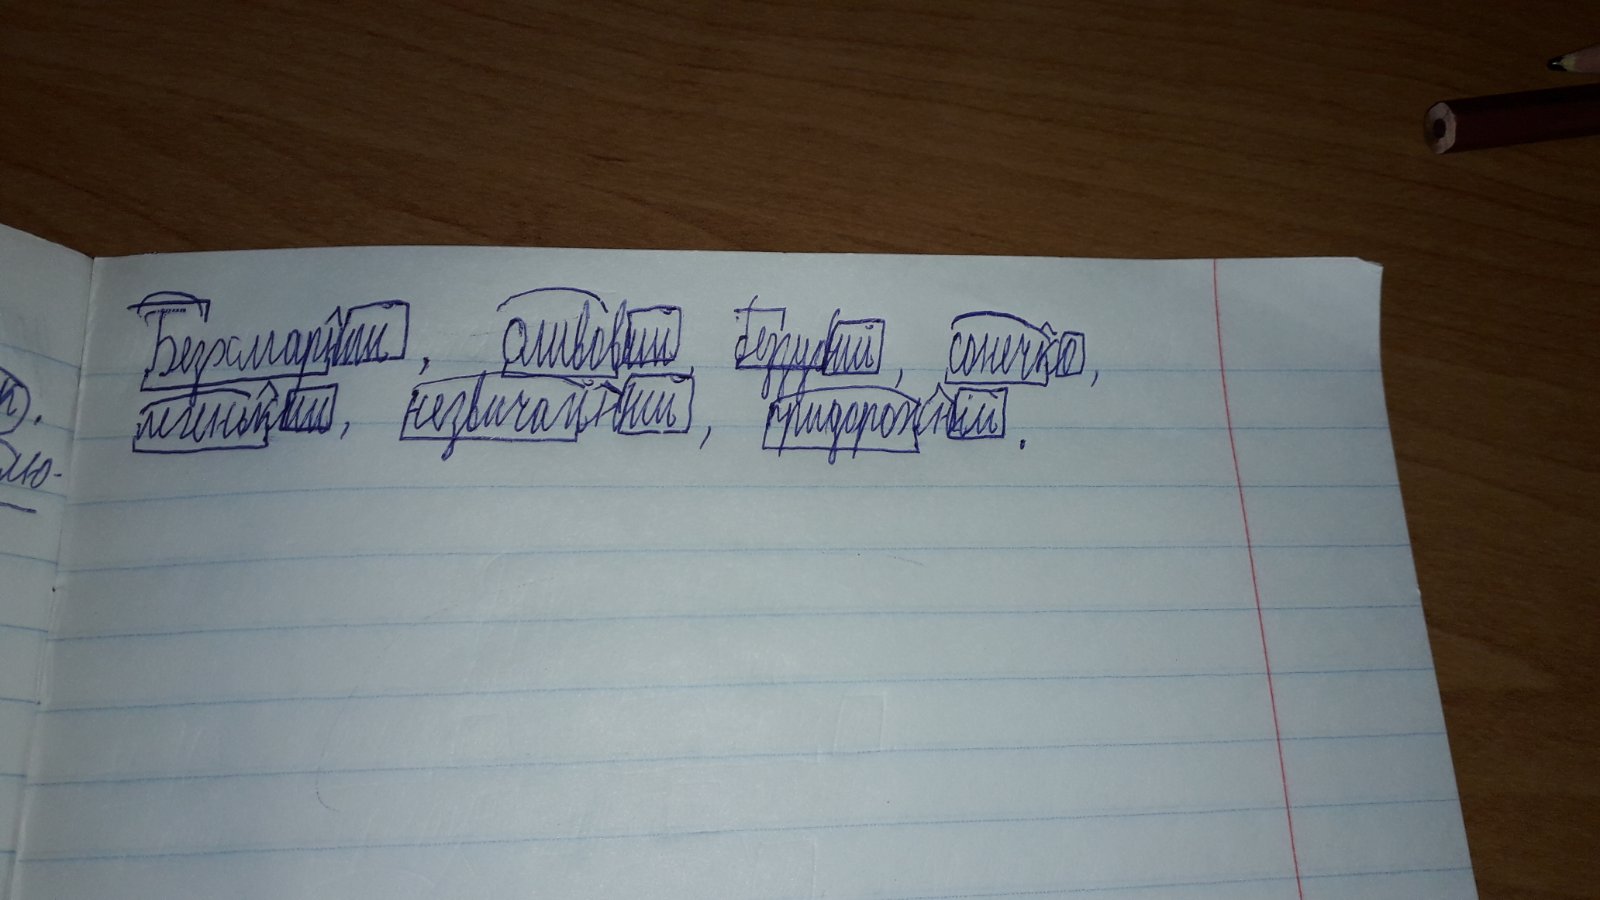 Безхмарний, оливовий, безрукий, сонечко,
легенький, незвичайний, придорожній.
лю-